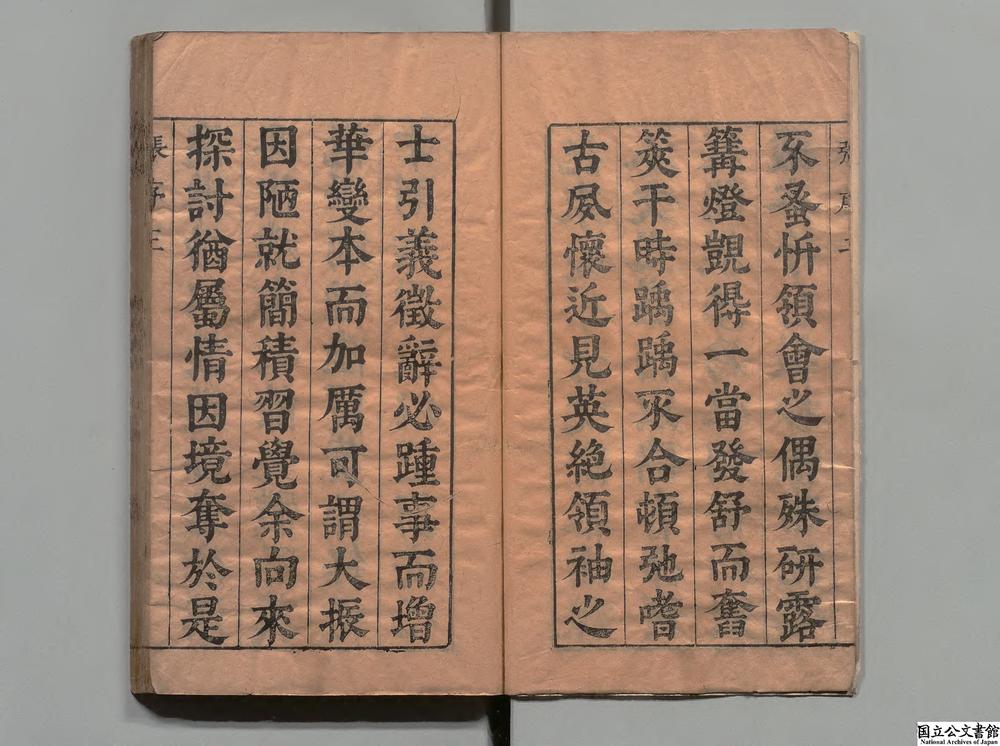 不蚤忻領會之偶殊研露
篝燈覬得一當發舒而奮
筴干時踽踽不合頓弛嗜
古夙懷近見英絕領袖之
士引義徵辭必踵事而增
華變本而加厲可謂大振
因陋就簡積習覺余向來
探討猶屬情因境奪於是
張序三
国立公文書館
National Archives of Japan